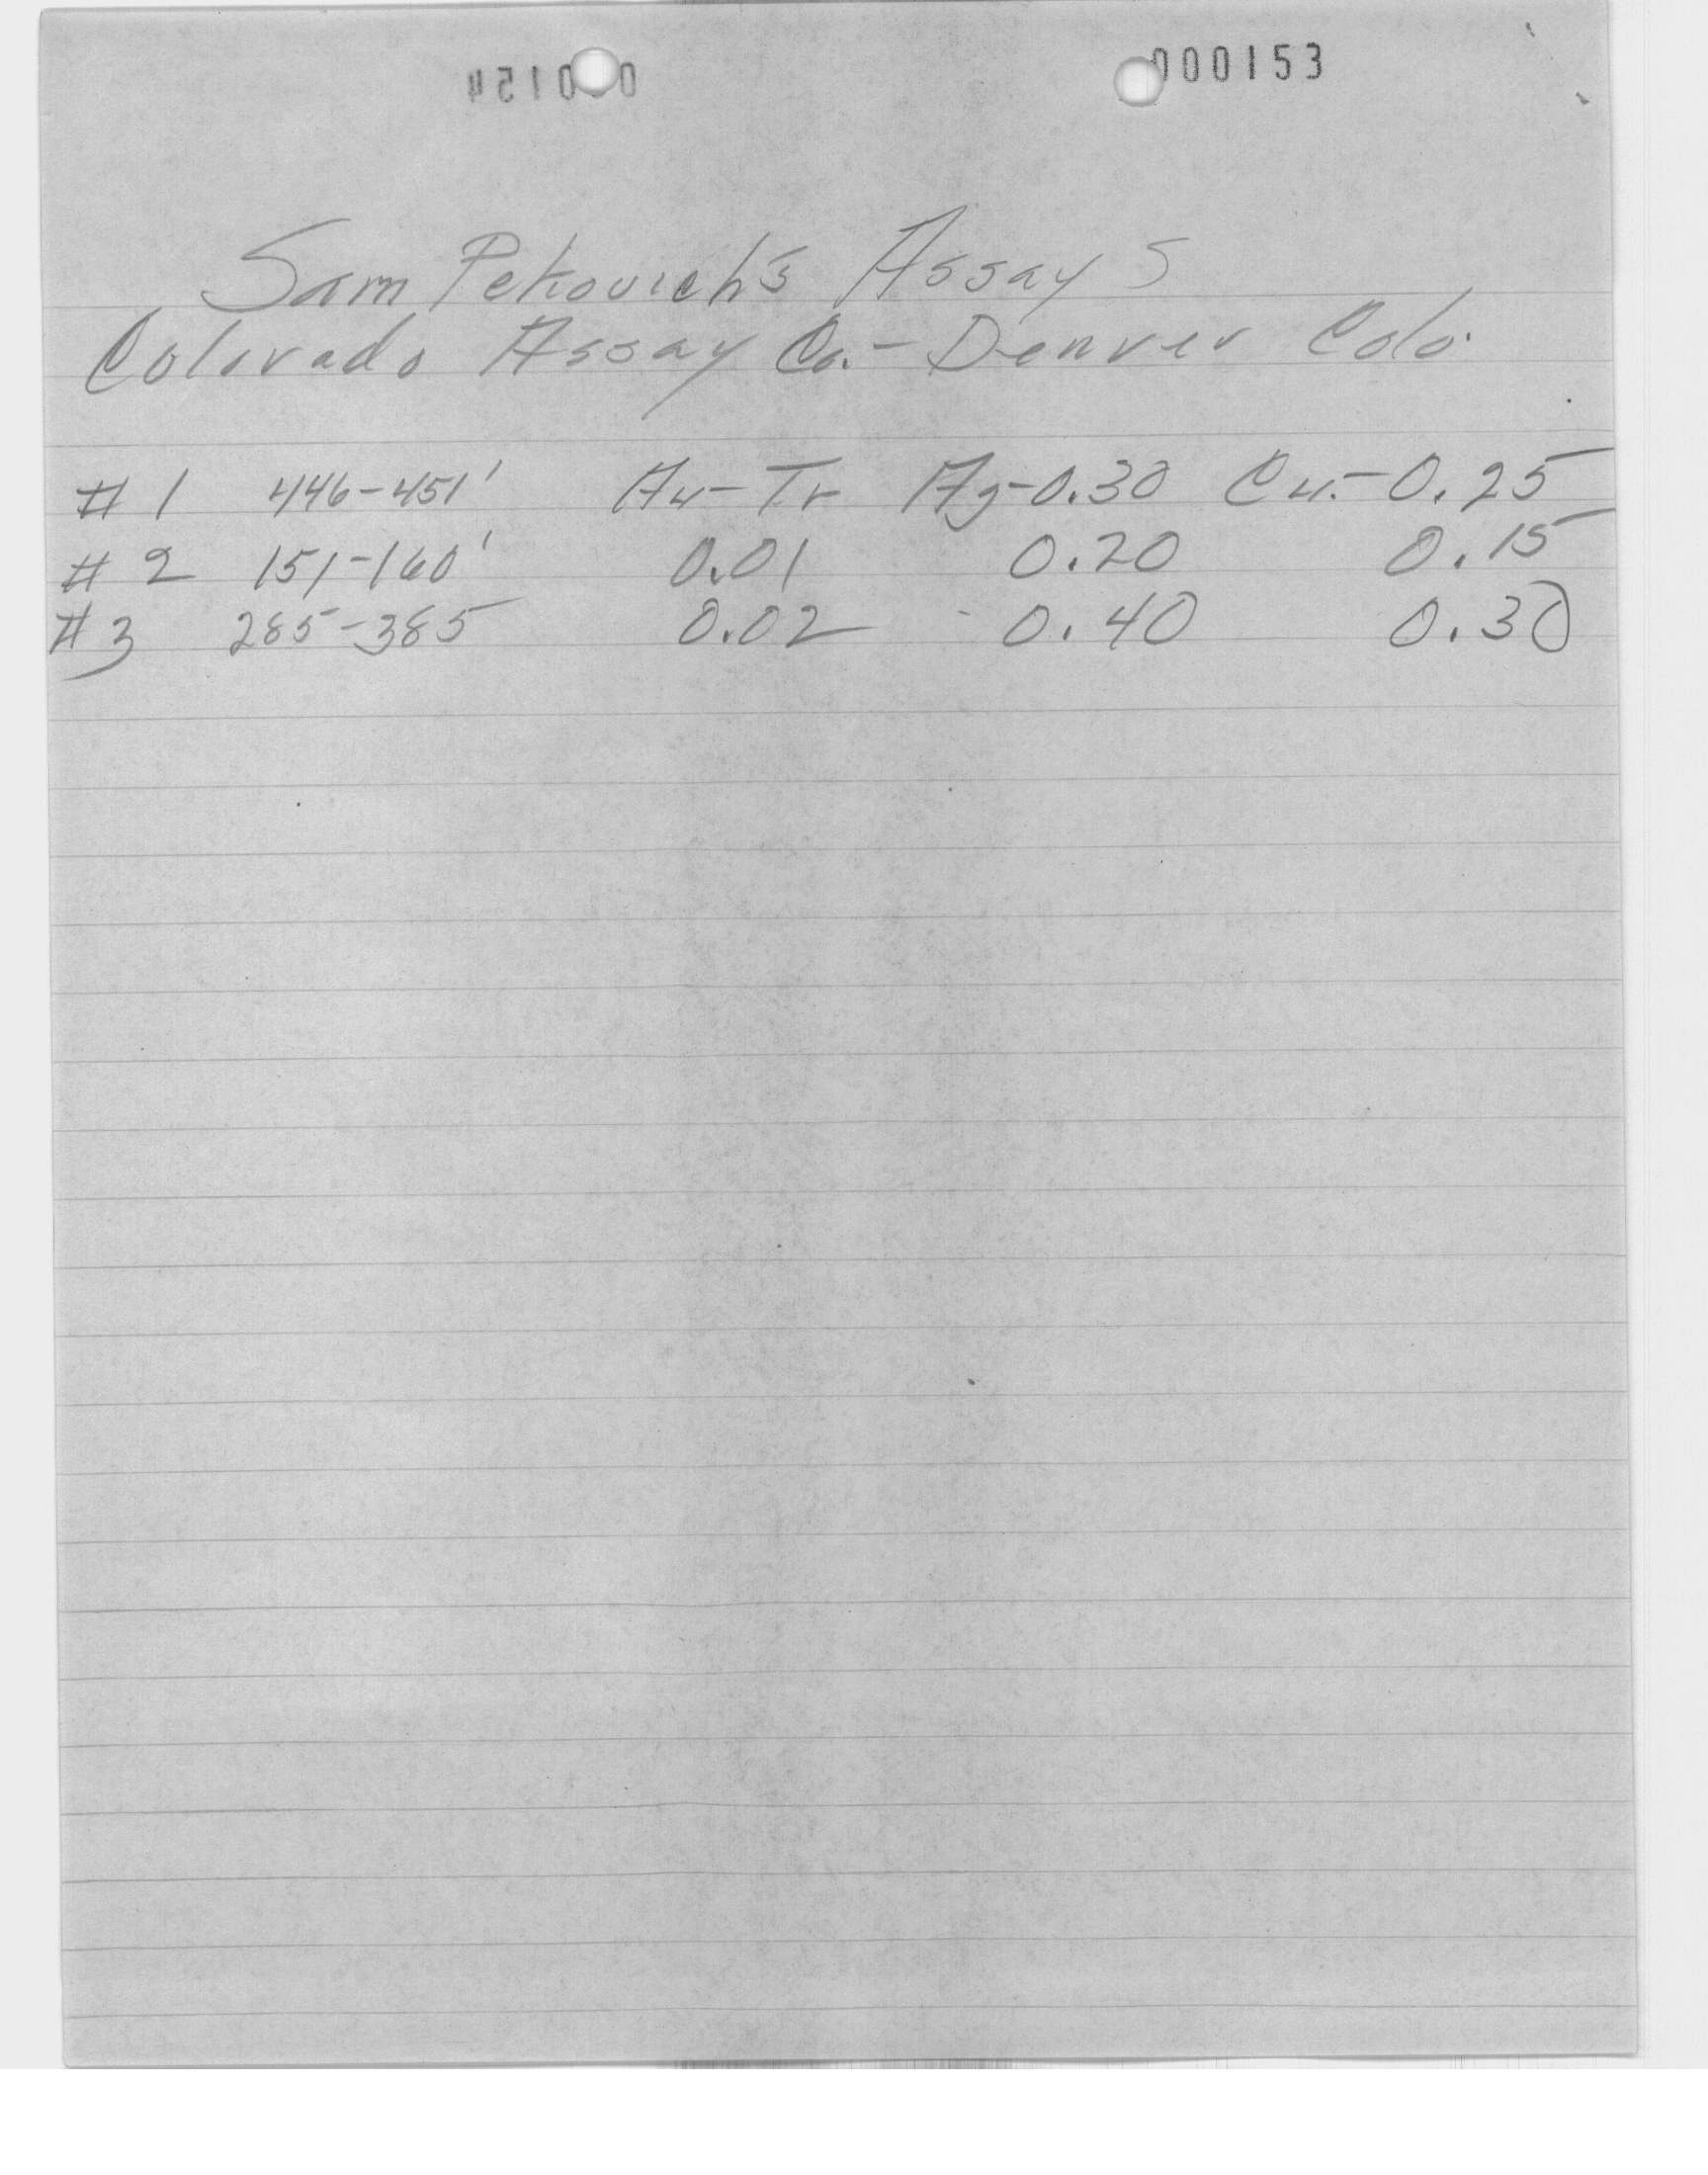 000153
Sam Pekovich's Assays
Colorado Assay Co. - Denver Colo.
# 1 446-451' Au-Tr Ag-0.30 Cu.-0.25
# 2 151-160' 0.01 0.20 0.15
#3 285-385 0.02 0.40 0.30